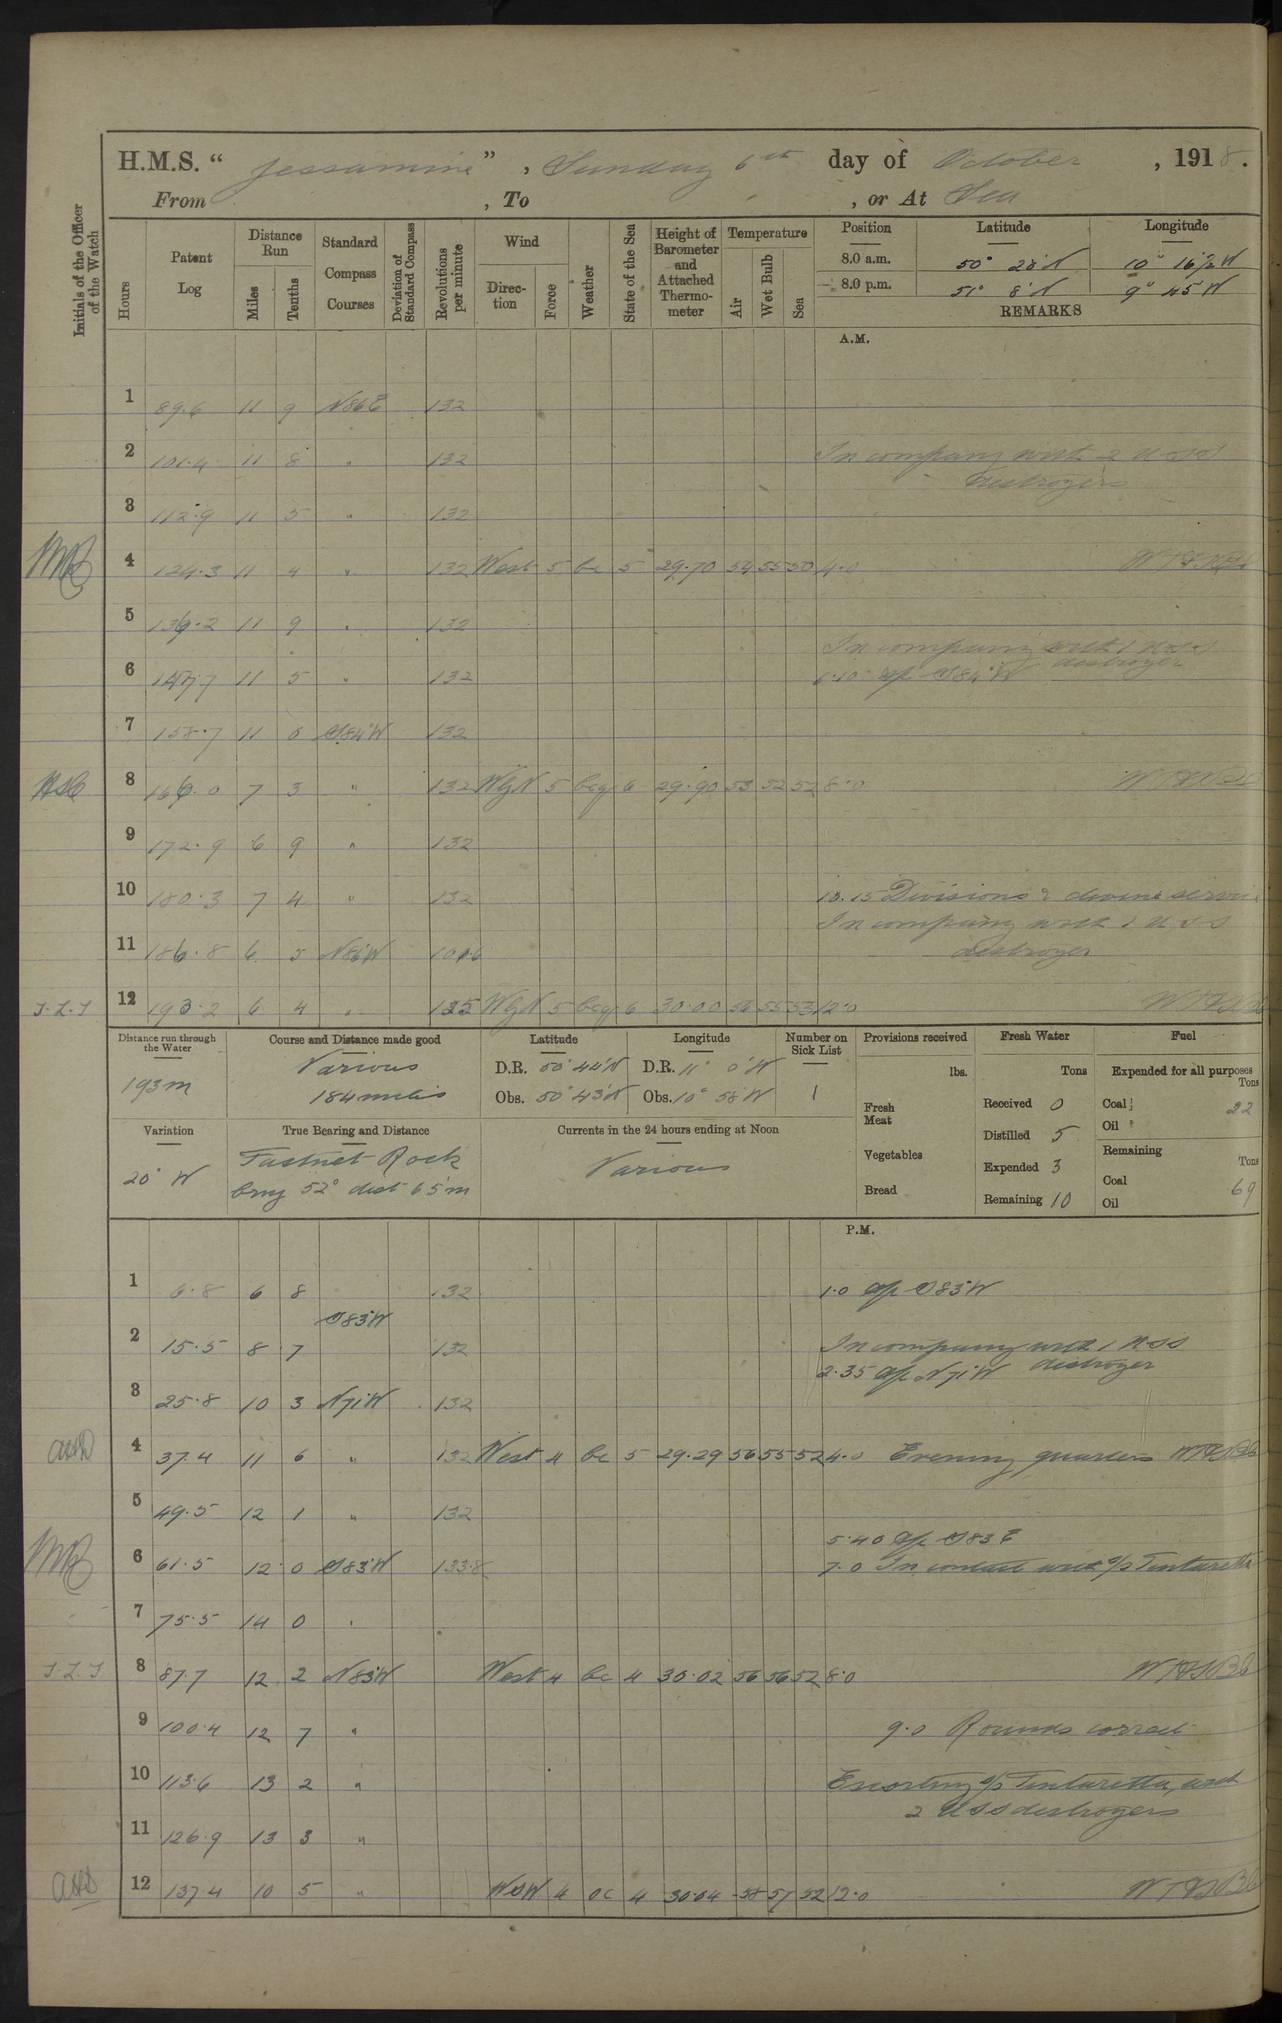 H.M.S. “ Jessamine ” , Sunday 6th day of October , 1918.
From , To , or At Sea
Initials of the Officer of the Watch
Hours
Patent Log
Distance Run
Miles
Tenths
Standard Compass Courses
Deviation of Standard Compass
Revolutions per minute
Wind
Direction
Force
Weather
State of the Sea
Height of Barometer and Attached Thermometer
Temperature
Air
Wet Bulb
Sea
Position Latitude Longitude
8.0 a.m. 50° 28'N 10° 16½'W
8.0 p.m. 51° 8'N 9° 45'W
REMARKS
A.M.
1 89.6 11 9 N86E 132
2 101.4 11 8 " 132 In company with 2 USS
destroyers
3 112.9 11 5 " 132
4 124.3 11 4 " 132 West 5 bc 5 29.70 54 55 50 4.0
5 136.2 11 9 " 132
In company with 1 USS
destroyer
6 147.7 11 5 " 132 6.10 a/c S84°W
7 158.7 11 0 S84°W 132
8 166.0 7 3 " 132 WyN 5 bcq 6 29.90 53 52 52 8.0
9 172.9 6 9 " 132
10 180.3 7 4 " 132 10.15 Divisions & divine service
In company with 1 USS
11 186.8 6 5 N86°W destroyer
12 193.2 6 4 " WyN 5 bcq 6 30.00 56 55 53 12.0
Distance run through the Water
193m
Course and Distance made good
Various
184 miles
Latitude
D.R. 50° 44'N
Obs. 50° 43'N
Longitude
D.R. 11° 0'W
Obs. 10° 58'W
Number on Sick List
1
Provisions received
lbs.
Fresh Meat
Vegetables
Bread
Fresh Water
Tons
Received 0
Distilled 5
Expended 3
Remaining 10
Fuel
Expended for all purposes
Tons
Coal 22
Oil "
Remaining
Tons
Coal 69
Oil
Variation
20° W
True Bearing and Distance
Fastnet Rock
brng 52° dist 65m
Currents in the 24 hours ending at Noon
Various
P.M.
1 6.8 6 8 132 1.0 a/c S83°W
S83°W
2 15.5 8 7 132 In company with 1 USS
destroyer
2.35 a/c N71°W
3 25.8 10 3 N71°W 132
4 37.4 11 6 " 132 West 4 bc 5 29.29 56 55 52 4.0 Evening quarters
5 49.5 12 1 " 132
5.40 a/c S83°E
6 61.5 12 0 S83°W 133.8 7.0 In contact with s/s Tintoretta
7 75.5 14 0 "
J.L.J 8 87.7 12 2 N83°W West 4 bc 4 30.02 56 56 52 8.0
9 100.4 12 7 " 9.0 Rounds correct
10 113.6 13 2 " Escorting s/s Tintoretta, with
2 USS destroyers
11 126.9 13 3 "
12 137.4 10 5 " WSW 4 oc 4 30.04 58 57 52 12.0